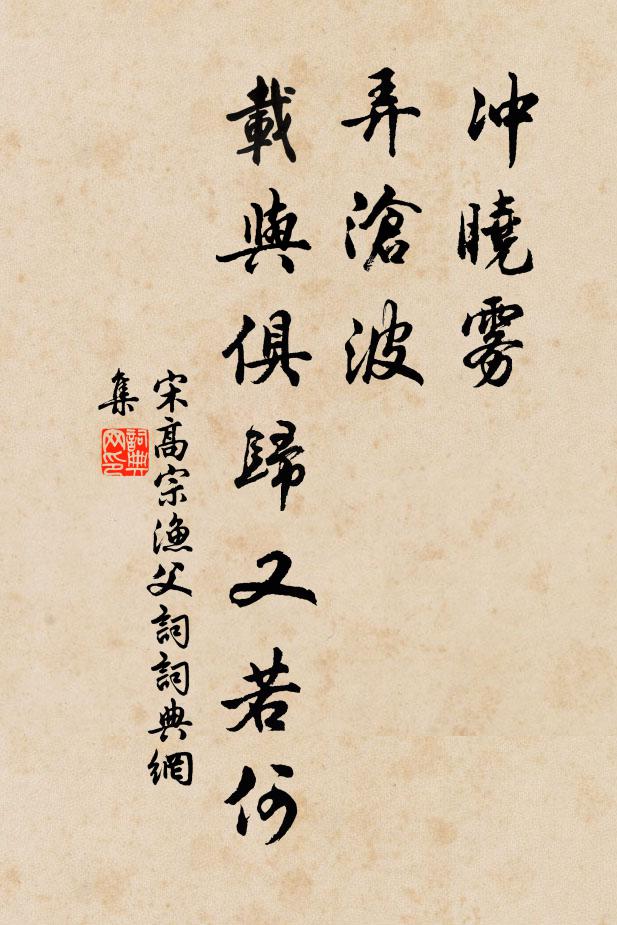 冲曉雾
弄滄波
載與俱歸又若何
宋高宗漁父詞詞典網
集
詞典
网印